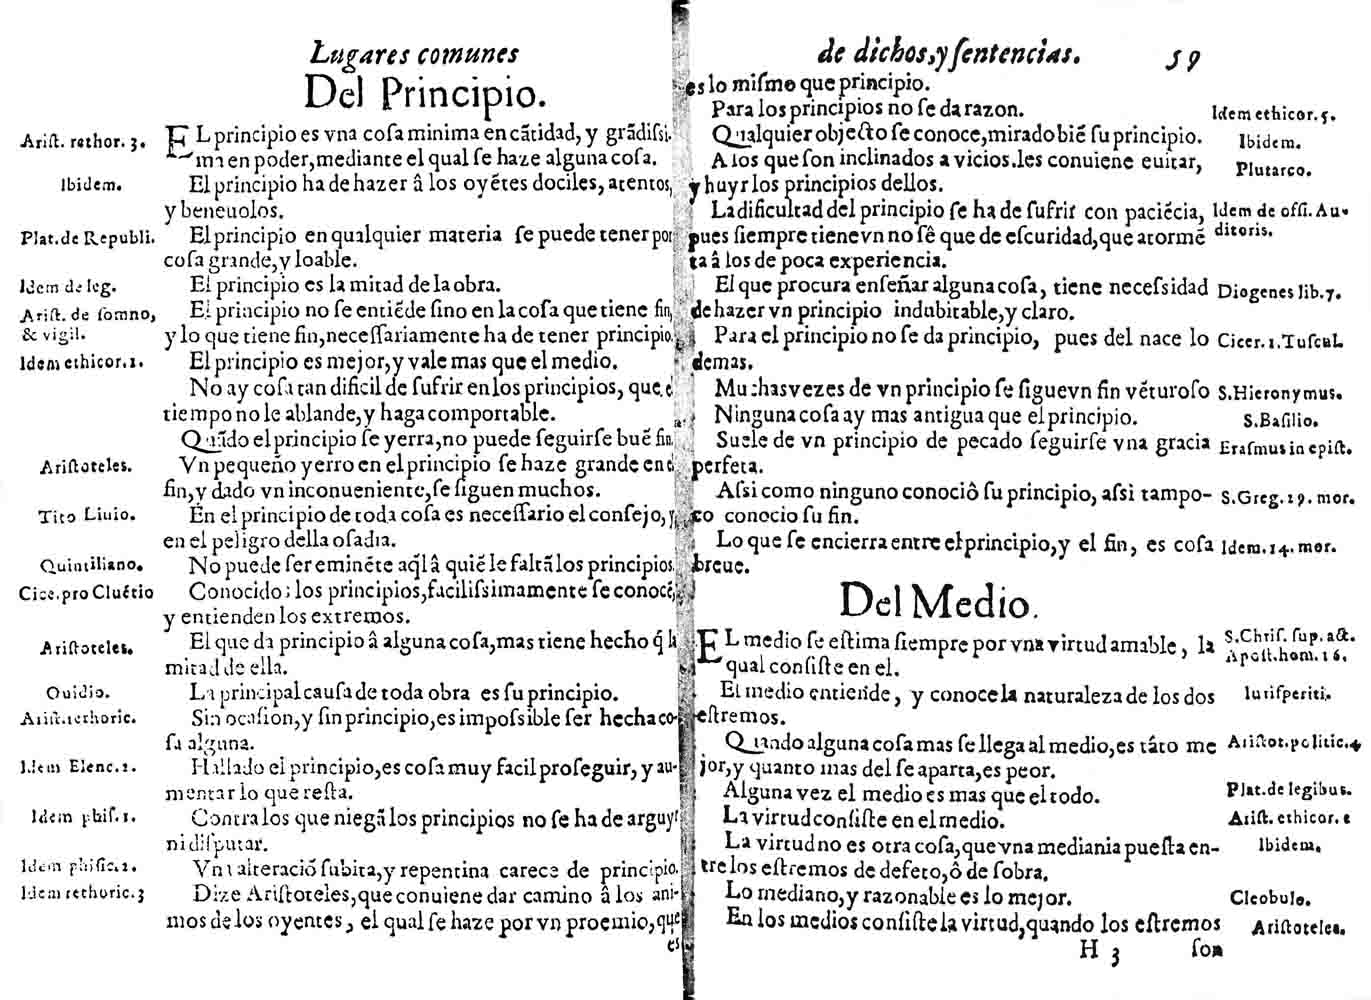 Lugares comunes
Del Principio.
Arist. rethor. 3.
EL principio es vna cosa minima en cãtidad, y grãdissi-
ma en poder, mediante el qual se haze alguna cosa.
Ibidem.
El principio ha de hazer â los oyẽtes dociles, atentos,
y beneuolos.
Plat. de Republi.
El principio en qualquier materia se puede tener por
cosa grande, y loable.
Idem de leg.
El principio es la mitad de la obra.
Arist. de somno,
& vigil.
El principio no se entiẽde sino en la cosa que tiene fin,
y lo que tiene fin, necessariamente ha de tener principio.
Idem ethicor. 1.
El principio es mejor, y vale mas que el medio.
No ay cosa tan dificil de sufrir en los principios, que el
tiempo no le ablande, y haga comportable.
Quãdo el principio se yerra, no puede seguirse buẽ fin.
Aristoteles.
Vn pequeño yerro en el principio se haze grande en el
fin, y dado vn inconueniente, se siguen muchos.
Tito Liuio.
En el principio de toda cosa es necessario el consejo, y
en el peligro della osadia.
Quintiliano.
No puede ser eminẽte aq̃l â quiẽ le faltã los principios.
Cice. pro Cluẽtio
Conocidos los principios, facilissimamente se conocẽ,
y entienden los extremos.
Aristoteles.
El que da principio â alguna cosa, mas tiene hecho q̃ la
mitad de ella.
Ouidio.
La principal causa de toda obra es su principio.
Arist. rethoric.
Sin ocasion, y sin principio, es impossible ser hecha co-
sa alguna.
Idem Elenc. 2.
Hallado el principio, es cosa muy facil proseguir, y au-
mentar lo que resta.
Idem phis. 1.
Contra los que niegã los principios no se ha de arguyr
ni disputar.
Idem phisic. 2.
Vna alteraciõ subita, y repentina carece de principio.
Idem rethoric. 3
Dize Aristoteles, que conuiene dar camino â los ani-
mos de los oyentes, el qual se haze por vn proemio, que
es
de dichos, y sentencias. 59
es lo mismo que principio.
Para los principios no se da razon.
Idem ethicor. 5.
Qualquier objecto se conoce, mirado biẽ su principio.
Ibidem.
A los que son inclinados a vicios. les conuiene euitar,
Plutarco.
y huyr los principios dellos.
La dificultad del principio se ha de sufrir con paciẽcia,
Idem de offi. Au-
ditoris.
pues siempre tiene vn no sê que de escuridad, que atormẽ
ta â los de poca experiencia.
El que procura enseñar alguna cosa, tiene necessidad
Diogenes lib. 7.
de hazer vn principio indubitable, y claro.
Para el principio no se da principio, pues del nace lo
Cicer. 1. Tuscul.
demas.
Muchas vezes de vn principio se sigue vn fin vẽturoso
S. Hieronymus.
Ninguna cosa ay mas antigua que el principio.
S. Basilio.
Suele de vn principio de pecado seguirse vna gracia
Erasmus in epist.
perfeta.
Assi como ninguno conociô su principio, assi tampo-
S. Greg. 29. mor.
co conocio su fin.
Lo que se encierra entre el principio, y el fin, es cosa
Idem. 14. mor.
breue.
Del Medio.
EL medio se estima siempre por vna virtud amable, la
S. Chris. sup. act.
Apost. hom. 16.
qual consiste en el.
El medio entiende, y conoce la naturaleza de los dos
Iurisperiti.
estremos.
Quando alguna cosa mas se llega al medio, es tãto me
Aristot. politic. 4
jor, y quanto mas del se aparta, es peor.
Alguna vez el medio es mas que el todo.
Plat. de legibus.
La virtud consiste en el medio.
Arist. ethicor. 2
La virtud no es otra cosa, que vna mediania puesta en-
Ibidem.
tre los estremos de defeto, ô de sobra.
Lo mediano, y razonable es lo mejor.
Cleobulo.
En los medios consiste la virtud, quando los estremos
Aristoteles.
H 3 son